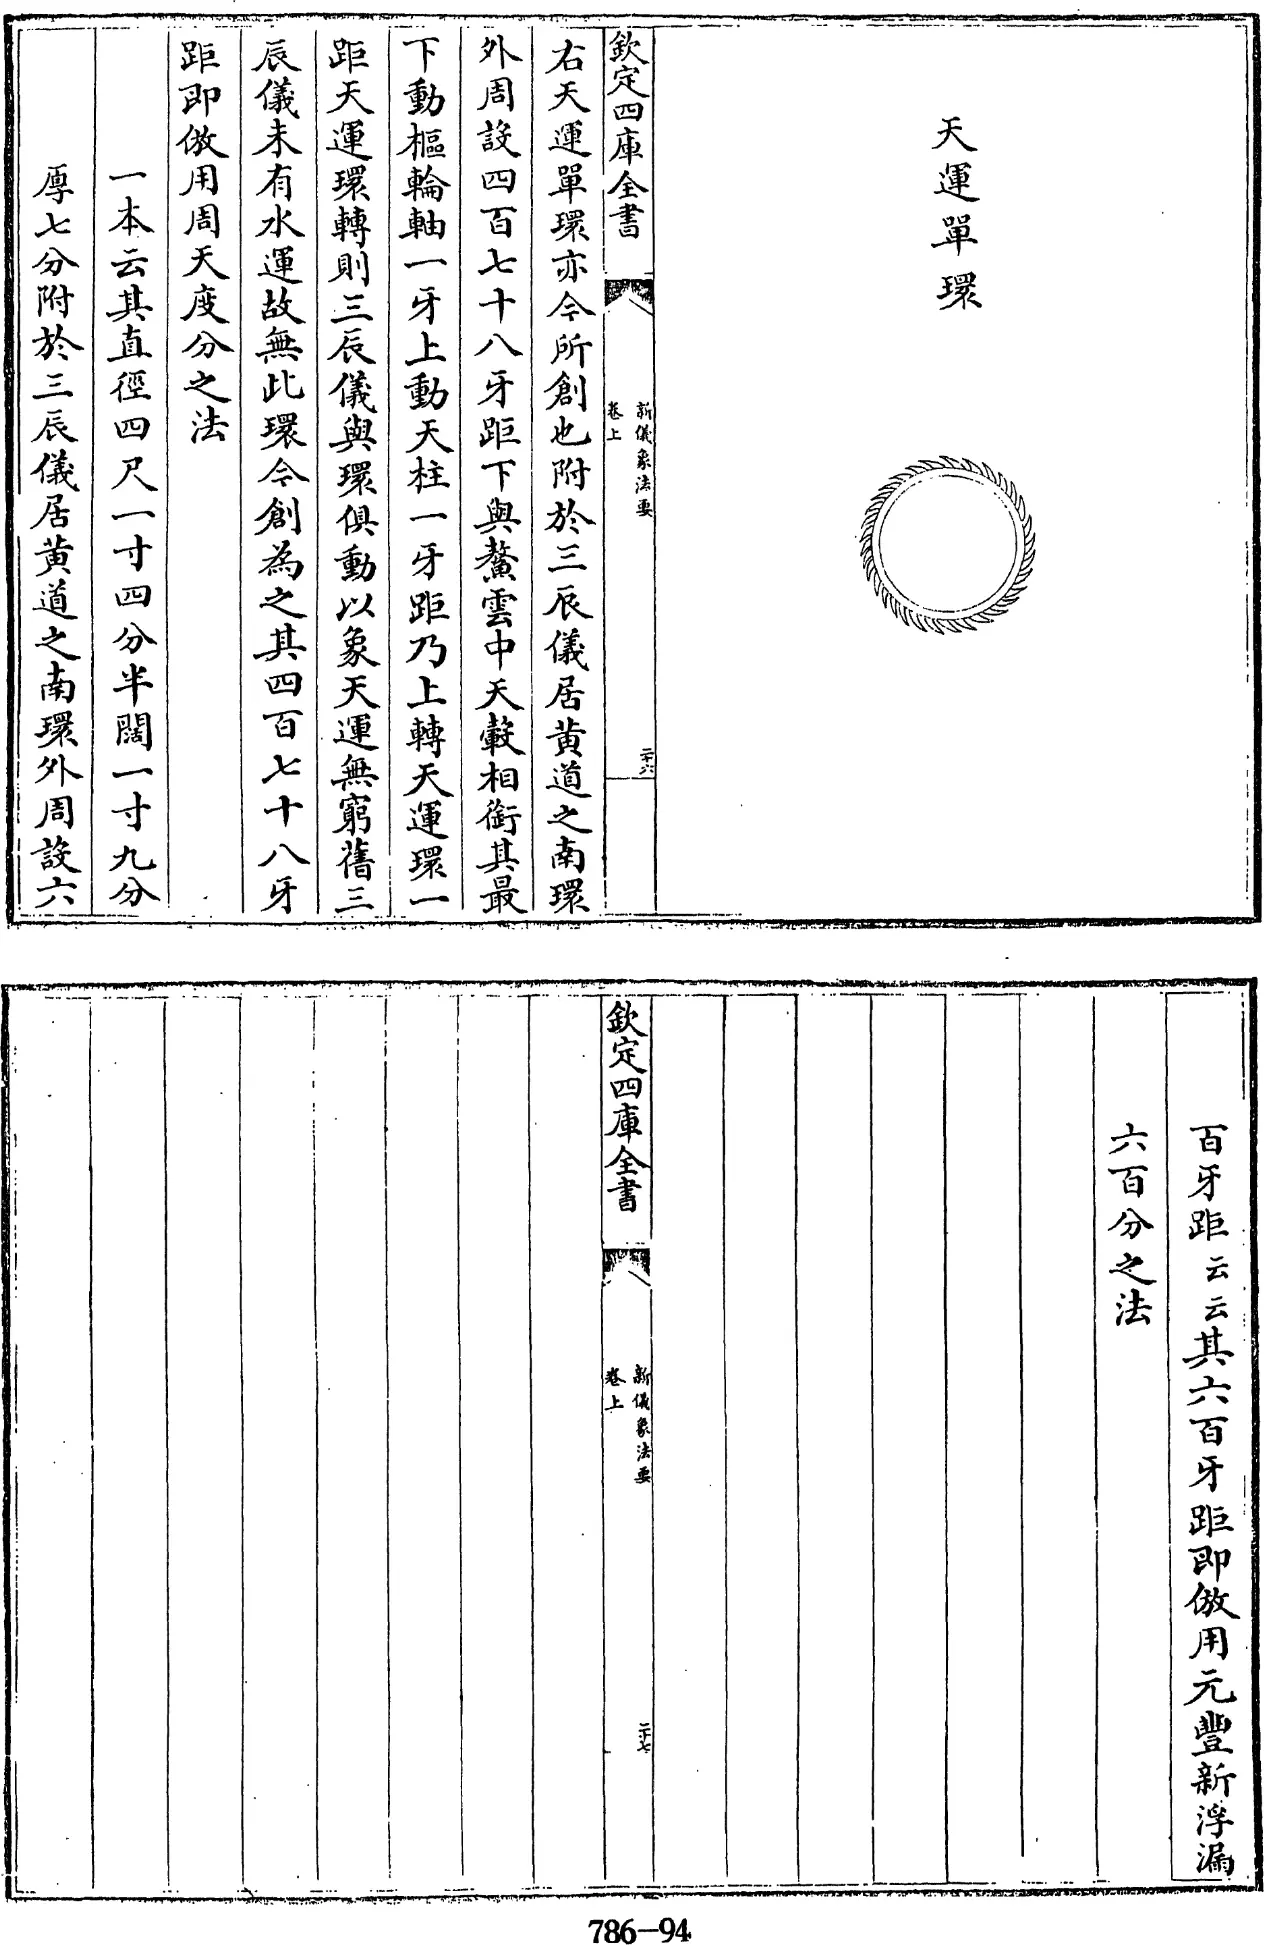 天運單環
欽定四庫全書
新儀象法要
卷上
二十六
右天運單環亦今所創也附於三辰儀居黄道之南環
外周設四百七十八牙距下與鰲雲中天轂相銜其最
下動樞輪軸一牙上動天柱一牙距乃上轉天運環一
距天運環轉則三辰儀與環俱動以象天運無窮舊三
辰儀未有水運故無此環今創為之其四百七十八牙
距即倣用周天度分之法
一本云其直徑四尺一寸四分半闊一寸九分
厚七分附於三辰儀居黄道之南環外周設六
百牙距云云其六百牙距即倣用元豐新浮漏
六百分之法
欽定四庫全書
新儀象法要
卷上
二十七
786-94